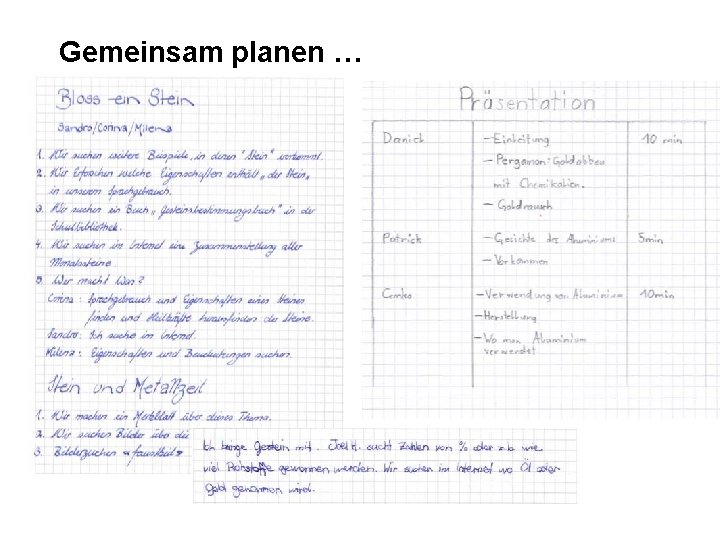 Gemeinsam planen …
Bloss ein Stein
Sandro/Corina/Milena
1. Wir suchen weitere Beispiele, in denen "Stein" vorkommt.
2. Wir Erforschen welche Eigenschaften enthält „der Stein„
in unserem Sprachgebrauch.
3. Wir suchen ein Buch „Gesteinsbestimmungsbuch" in der
Schulbibliothek.
4. Wir suchen im Internet eine Zusammenstellung aller
Monatssteine.
5. Wer macht Was?
Corina: Sprachgebrauch und Eigenschaften eines Steines
finden und Heilkräfte herausfinden der Steine.
Sandro: Ich suche im Internet.
Milena: Eigenschaften und Bedeutungen suchen.
Stein und Metallzeit
1. Wir machen ein Merkblatt über dieses Thema.
2. Wir suchen Bilder über die
3. Bilder suchen "Faustkeil"
Präsentation
Danich – Einleitung 10 min
– Pergamon: Goldabbau
mit Chemikalien.
– Goldrausch
Patrick – Gesichte des Aluminiums 5min
– Vorkommen
Cenks – Verwendung von Aluminium 10min
– Herstellung
– Wo man Aluminium
verwendet
Ich bringe Gestein mit. Joel K. sucht Zahlen von % oder z.b. wie
viel Rohstoffe gewonnen werden. Wir suchen im Internet wo Öl oder
Gold gewonnen wird.